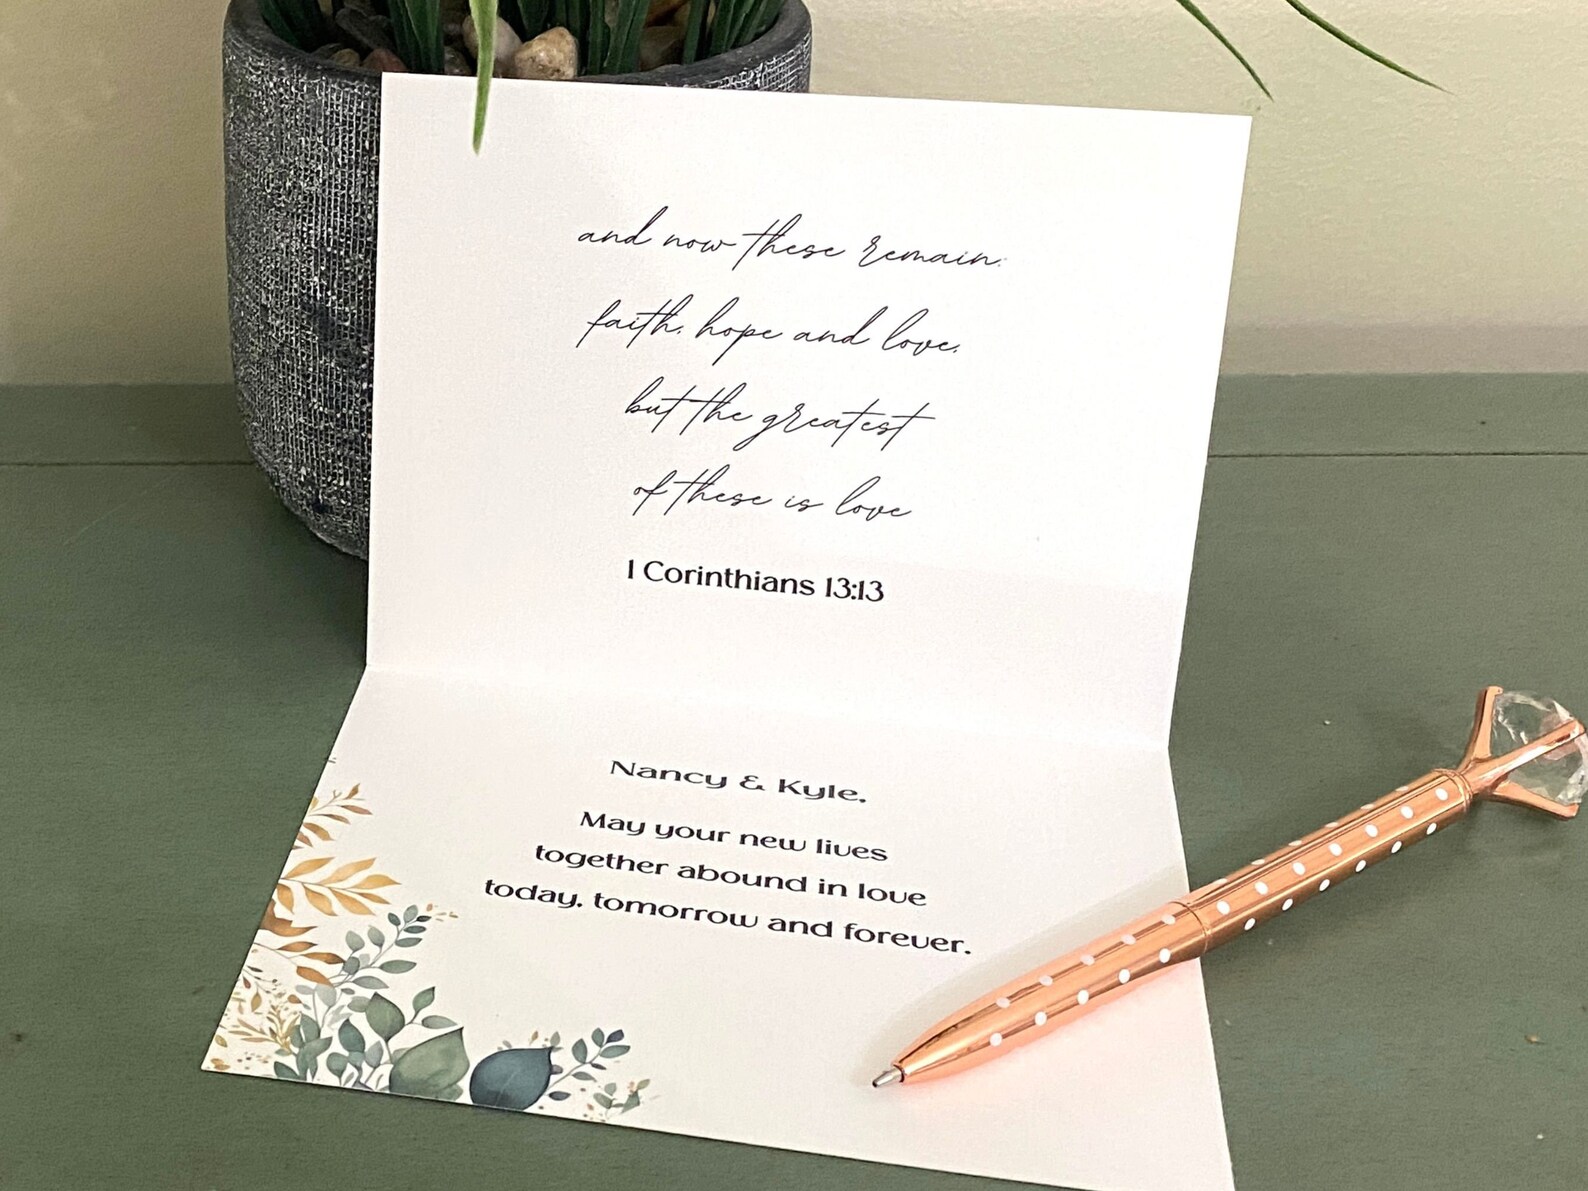 and now these remain:
faith, hope and love,
but the greatest
of these is love
1 Corinthians 13:13
Nancy & Kyle,
May your new lives
together abound in love
today, tomorrow and forever.